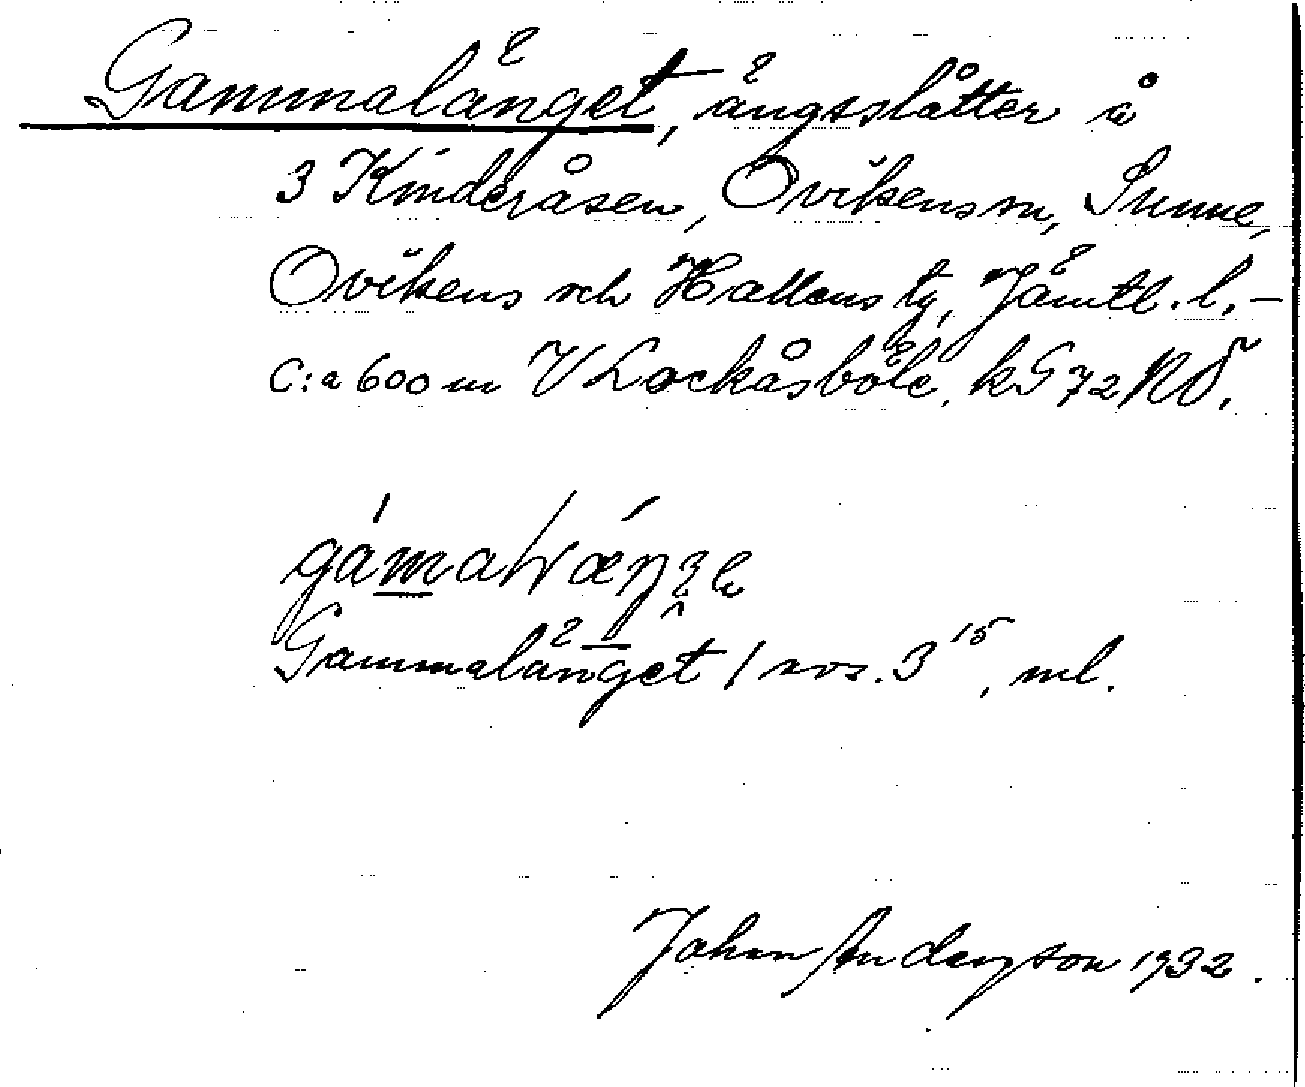 Gammalänget, ängsslåtter å
3 Kinderåsen, Ovikens sn, Sunne,
Ovikens och Hallens tg, Jämtl. l. –
C:a 600 m V Lockåsböle. kG 72 NO.
gámaꞎǽŋʒe
Gammalänget / 3 15, ml.
Johan Anderson 1932.